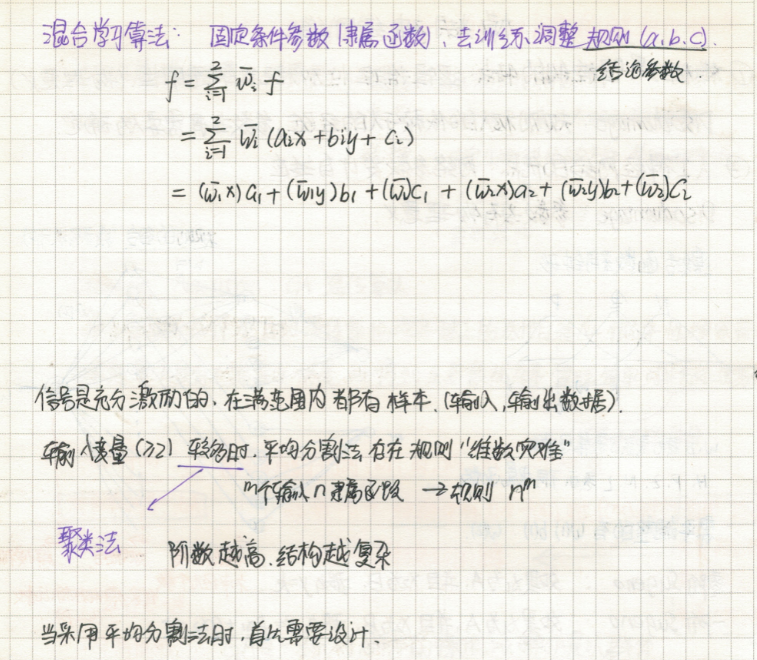 混合学习算法: 固定条件参数(隶属函数)、去训练调整规则(a.b.c).
结论参数.
f = \sum_{i=1}^{2} \bar{w}_i f
= \sum_{i=1}^{2} \bar{w}_i (a_i x + b_i y + c_i)
= (\bar{w}_1 x) a_1 + (\bar{w}_1 y) b_1 + (\bar{w}_1) c_1 + (\bar{w}_2 x) a_2 + (\bar{w}_2 y) b_2 + (\bar{w}_2) c_2
信号是充分激励的、在满范围内都有样本.(输入,输出数据).
输入变量(≥2)较多时.平均分割法存在规则“维数灾难”
m个输入n隶属函数 → 规则 n^m
聚类法
阶数越高、结构越复杂
当采用平均分割法时、首先需要设计、